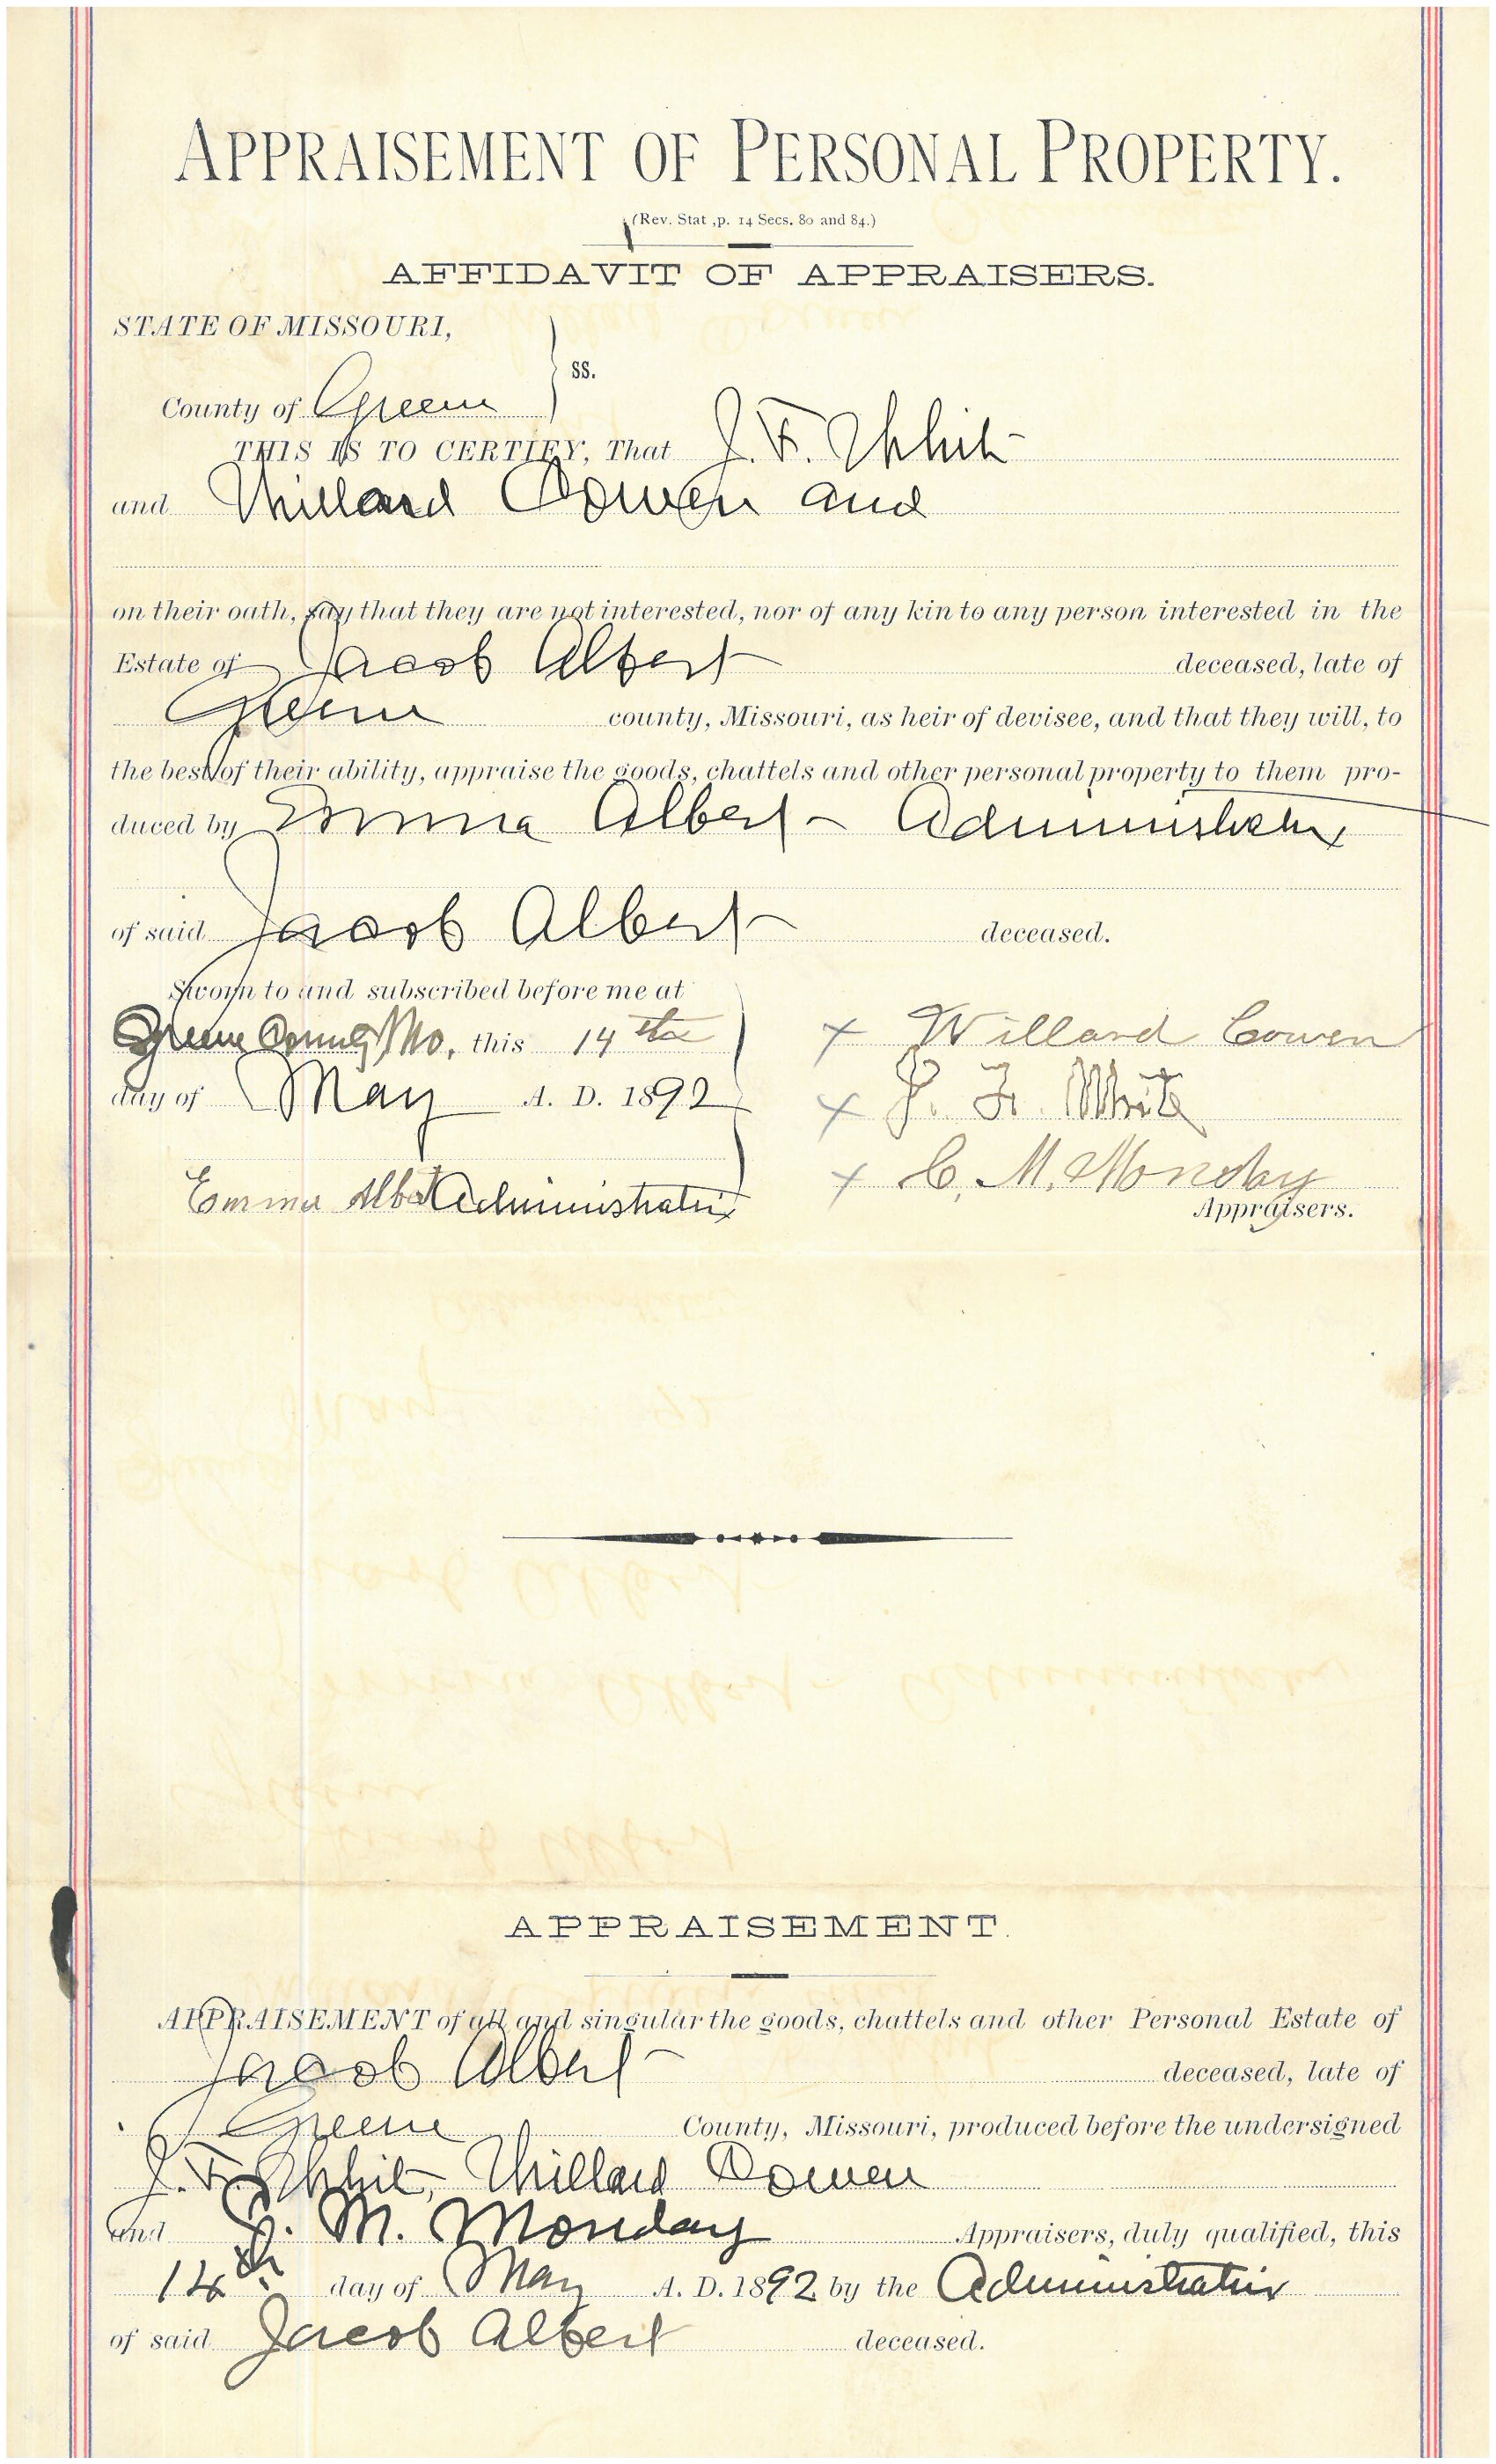 APPRAISEMENT OF PERSONAL PROPERTY.
(Rev. Stat ,p. 14 Secs. 80 and 84.)
AFFIDAVIT OF APPRAISERS.
STATE OF MISSOURI,
ss.
County of Greene
THIS IS TO CERTIFY, That J. F. White
and Willard Cowen and
on their oath, say that they are not interested, nor of any kin to any person interested in the
Estate of Jacob Albert deceased, late of
Greene county, Missouri, as heir of devisee, and that they will, to
the best of their ability, appraise the goods, chattels and other personal property to them pro-
duced by Emma Albert Administratrix
of said Jacob Albert deceased.
Sworn to and subscribed before me at
Greene County Mo, this 14th
day of May A. D. 1892
Emma Albert Administratrix
x Willard Cowen
x J. F. White
x C. M. Monday
Appraisers.
APPRAISEMENT.
APPRAISEMENT of all and singular the goods, chattels and other Personal Estate of
Jacob Albert deceased, late of
Greene County, Missouri, produced before the undersigned
J. F. White, Willard Cowen
and C. M. Monday Appraisers, duly qualified, this
14th day of May A. D. 1892 by the Administratrix
of said Jacob Albert deceased.